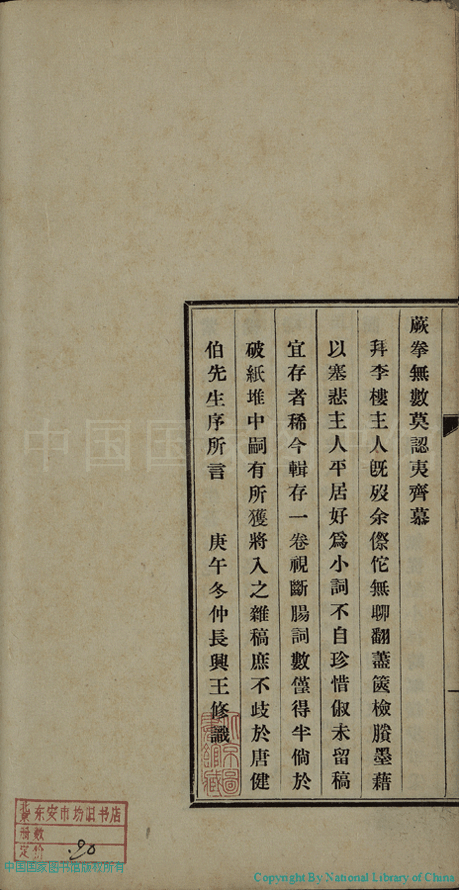 蕨拳無數莫認夷齊慕
拜李樓主人旣歿余傺侘無聊翻藎篋檢賸墨藉
以塞悲主人平居好爲小詞不自珍惜俶未留稿
宜存者稀今輯存一卷視斷腸詞數僅得半倘於
破紙堆中嗣有所獲將入之雜稿庶不歧於唐健
伯先生序所言 庚午冬仲長興王修識
东安市场旧书店
册数
定价 .90
中国国家图书馆版权所有
Copyright By National Library of China